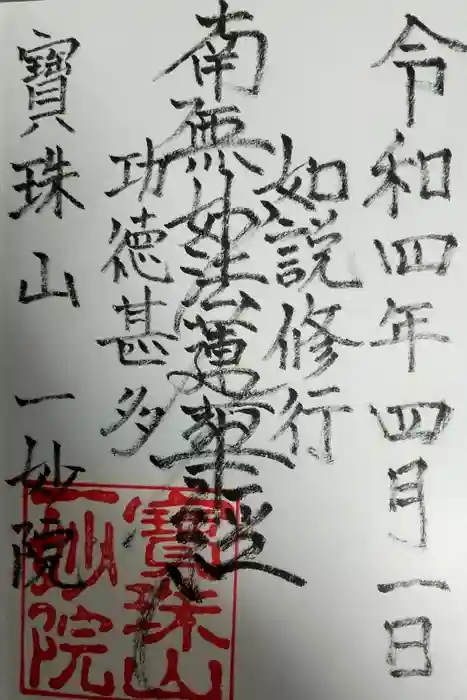 令和四年四月一日
如説修行
南無妙法蓮華経
功徳甚多
寶珠山 一妙院
寶珠山
一妙院